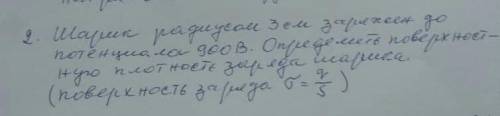 2. Шарик радиусом 3 см заряжен до
потенциала 900В. Определить поверхност-
ную плотность заряда шарика.
(поверхность заряда σ = q/S)